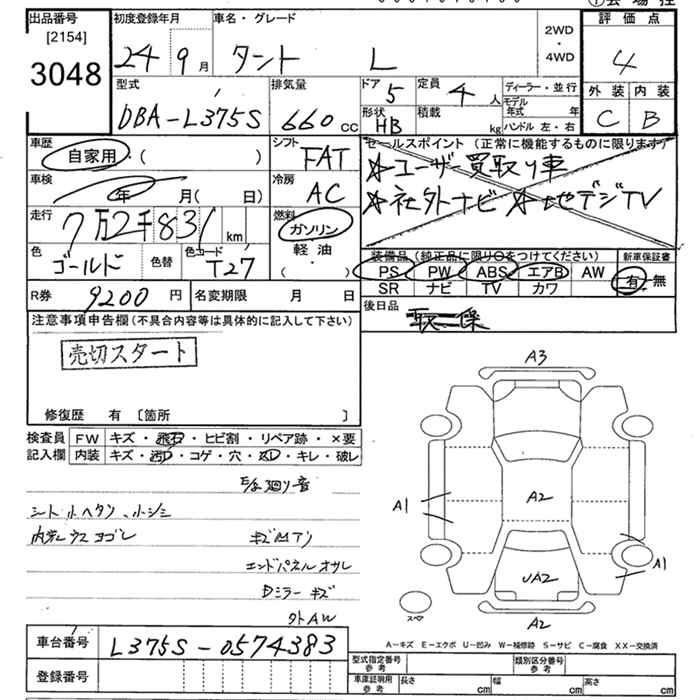 出品番号
[2154]
3048
初度登録年月
24 9月
車名・グレード
タント L
2WD
・
4WD
評価点
4
外装 内装
C B
型式
DBA-L375S
排気量
660 cc
ドア
5
形状
HB
定員
4 人
積載
kg
ディーラー・並行
モデル
年式 年
ハンドル 左・右
車歴
自家用・( )
シフト
FAT
セールスポイント (正常に機能するものに限ります)
☆ユーザー買取り車
☆社外ナビ ☆地デジTV
車検
年 月( 日)
冷房
AC
走行
7万2千831 km
燃料
ガソリン
軽油・
( )
色
ゴールド
色替
色コード
T27
装備品 (純正品に限り○をつけてください)
PS PW ABS エアB AW
SR ナビ TV カワ
新車保証書
有・無
R券 9200円
名変期限 月 日
後日品
注意事項申告欄(不具合内容等は具体的に記入して下さい)
売切スタート
修復歴 有 〔箇所 〕
検査員
記入欄
FW キズ・飛石・ヒビ割・リペア跡・×要
内装 キズ・汚れ・コゲ・穴・スレ・キレ・破レ
シート小ヘタリ、小シミ
内装ウスヨゴレ
キズ
エンドパネルオサレ
Dミラーキズ
外AW
A3
A2
A1
A1
UA2
A2
スペア
A-キズ E-エクボ U-凹み W-補修跡 S-サビ C-腐食 XX-交換済
車台番号 L375S-0574383
登録番号
型式指定番号
参考
類別区分番号
参考
車庫証明用
参考
長さ cm 幅 cm 高さ cm